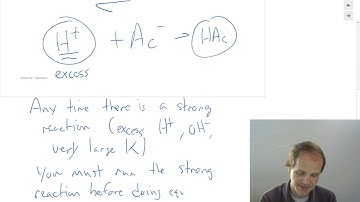 H⁺ + Ac⁻ → HAc
excess
Any time there is a strong
reaction (excess (H⁺, OH⁻,
very large K)
You must run the strong
reaction before doing equ